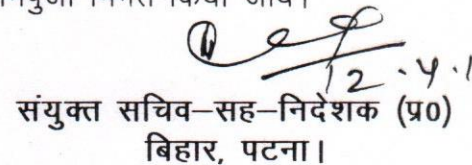 किया जाय।
12.4.1
संयुक्त सचिव–सह–निदेशक (प्र0)
बिहार, पटना।